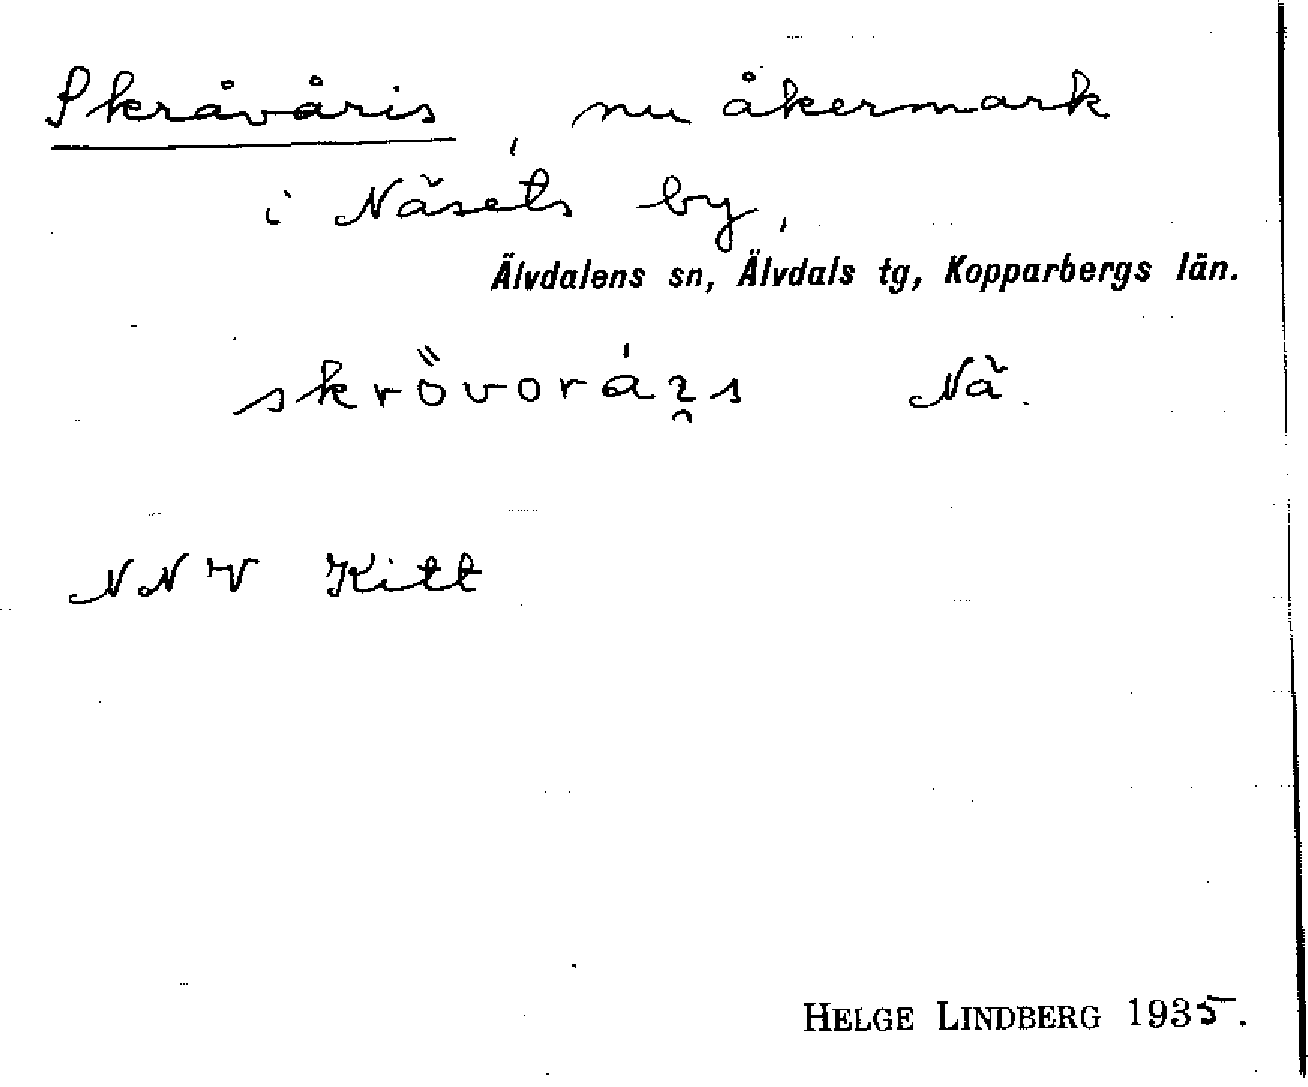 Skråvåris, nu åkermark
i Näsets by,
Älvdalens sn, Älvdals tg, Kopparbergs län.
Nä.
NNV Kitt
HELGE LINDBERG 1935.